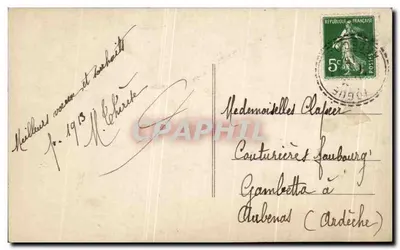 Meilleurs vœux et souhaits
pr 1913
M. Thérèse
RÉPUBLIQUE FRANÇAISE
5c
POSTES
CPAPHIL
Mademoiselles Clapier
Couturières faubourg
Gambetta à
Aubenas (Ardèche)